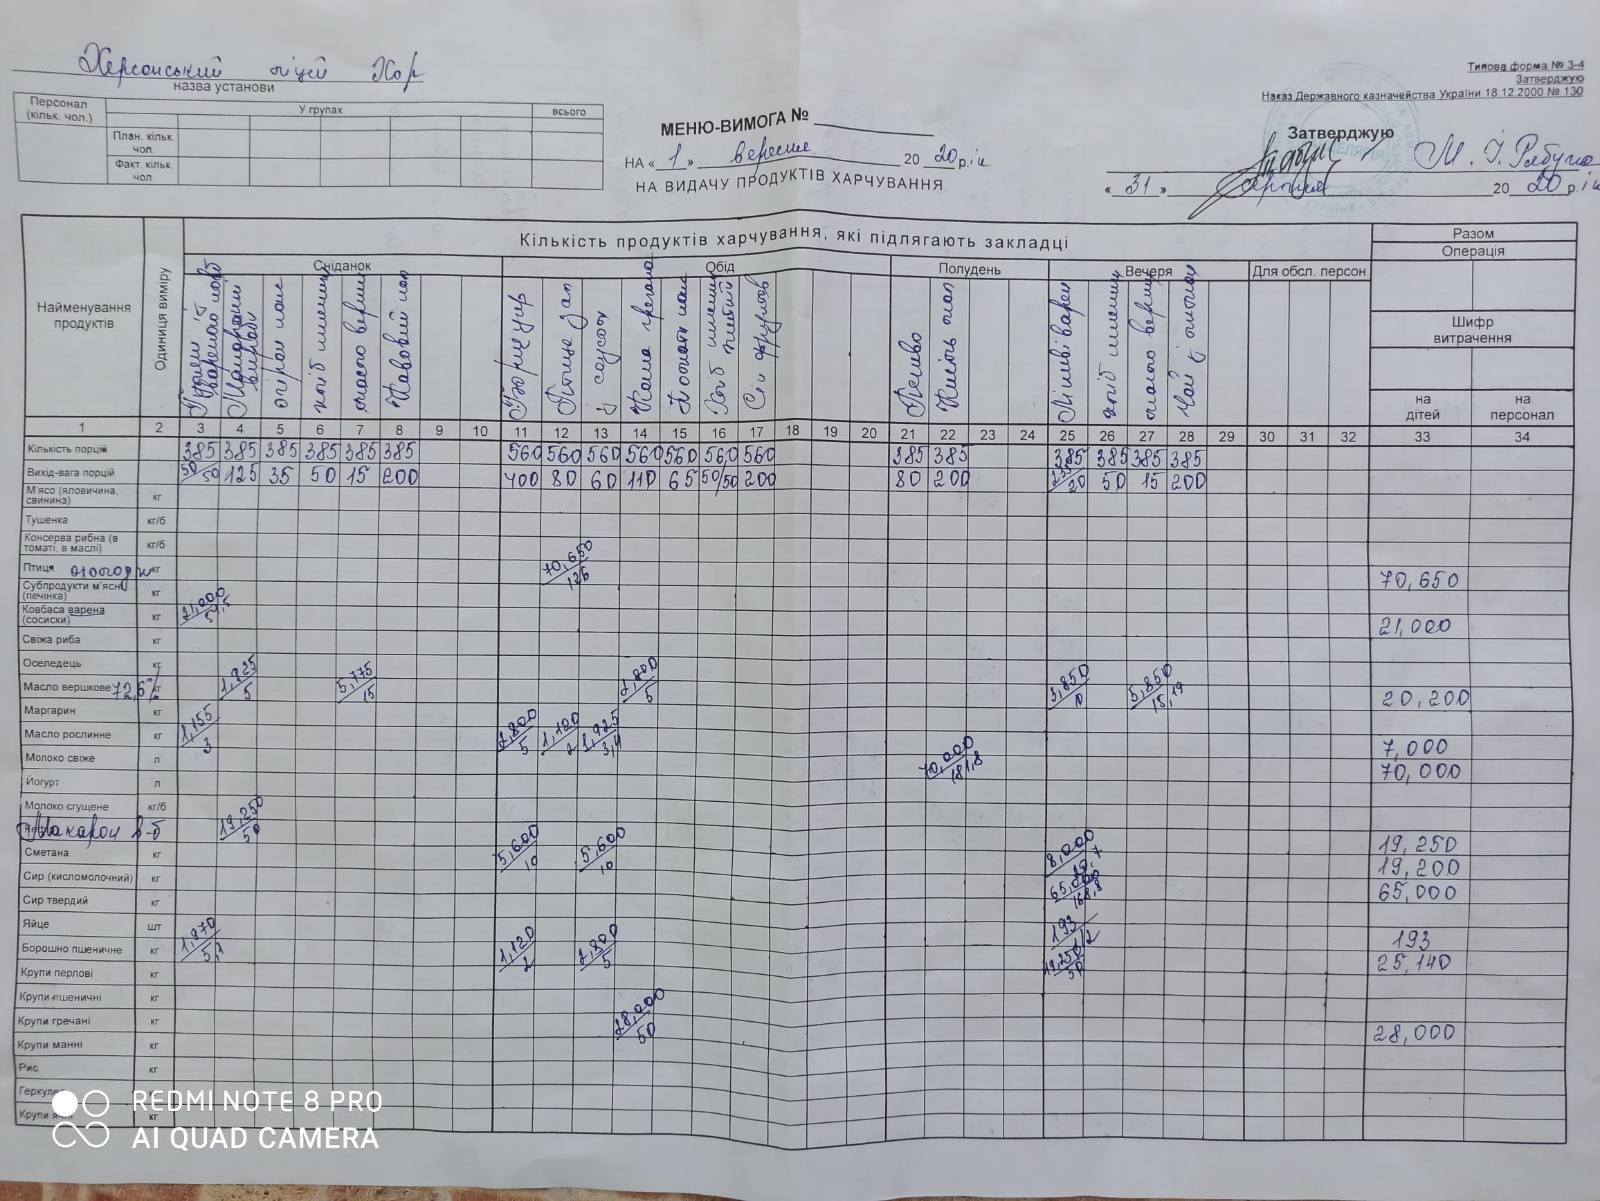 Херсонський ліцей ХОР
назва установи
Типова форма № З-4
Затверджую
Наказ Державного казначейства України 18.12.2000 № 130
Персонал (кільк. чол.) У групах всього
План. кільк. чол.
Факт. кільк. чол.
МЕНЮ-ВИМОГА №
НА « 1 » вересня 20 20 р.
НА ВИДАЧУ ПРОДУКТІВ ХАРЧУВАННЯ
Затверджую
« 31 » серпня 20 20 р.
Найменування продуктів
Одиниця виміру
Кількість продуктів харчування, які підлягають закладці
Разом
Операція
Шифр витрачення
на дітей
на персонал
Сніданок Обід Полудень Вечеря Для обсл. персон.
1 2 3 4 5 6 7 8 9 10 11 12 13 14 15 16 17 18 19 20 21 22 23 24 25 26 27 28 29 30 31 32 33 34
Кількість порцій 385 385 385 385 385 385 560 560 560 560 560 560 560 385 385 385 385 385 385
Вихід-вага порцій 50/50 125 35 50 15 200 400 80 60 110 65 50/50 200 80 200 50 15 200
М'ясо (яловичина, свинина) кг
Тушенка кг/б
Консерва рибна (в томаті, в маслі) кг/б
Птиця кг 70,650/126 70,650
Субпродукти м'ясні (печінка) кг
Ковбаса варена (сосиски) кг 21,000/54,5 21,000
Свіжа риба кг
Оселедець кг
Масло вершкове 72,5% кг 1,925/5 5,775/15 2,800/5 3,850/10 5,850/15,19 20,200
Маргарин кг
Масло рослинне кг 1,155/3 2,800/5 1,120/2 1,925/3,4 7,000
Молоко свіже л 70,000/181,8 70,000
Йогурт л
Молоко сгущене кг/б
Макарон в-б 19,250/50 19,250
Сметана кг 5,600/10 5,600/10 8,000/20,7 19,200
Сир (кисломолочний) кг 65,000/168,8 65,000
Сир твердий кг
Яйце шт 193/1/2 193
Борошно пшеничне кг 1,970/5,1 1,120/2 2,800/5 19,250/50 25,140
Крупи перлові кг
Крупи пшеничні кг
Крупи гречані кг 28,000/50 28,000
Крупи манні кг
Рис кг
Геркулес кг
Крупи кг
REDMI NOTE 8 PRO
AI QUAD CAMERA